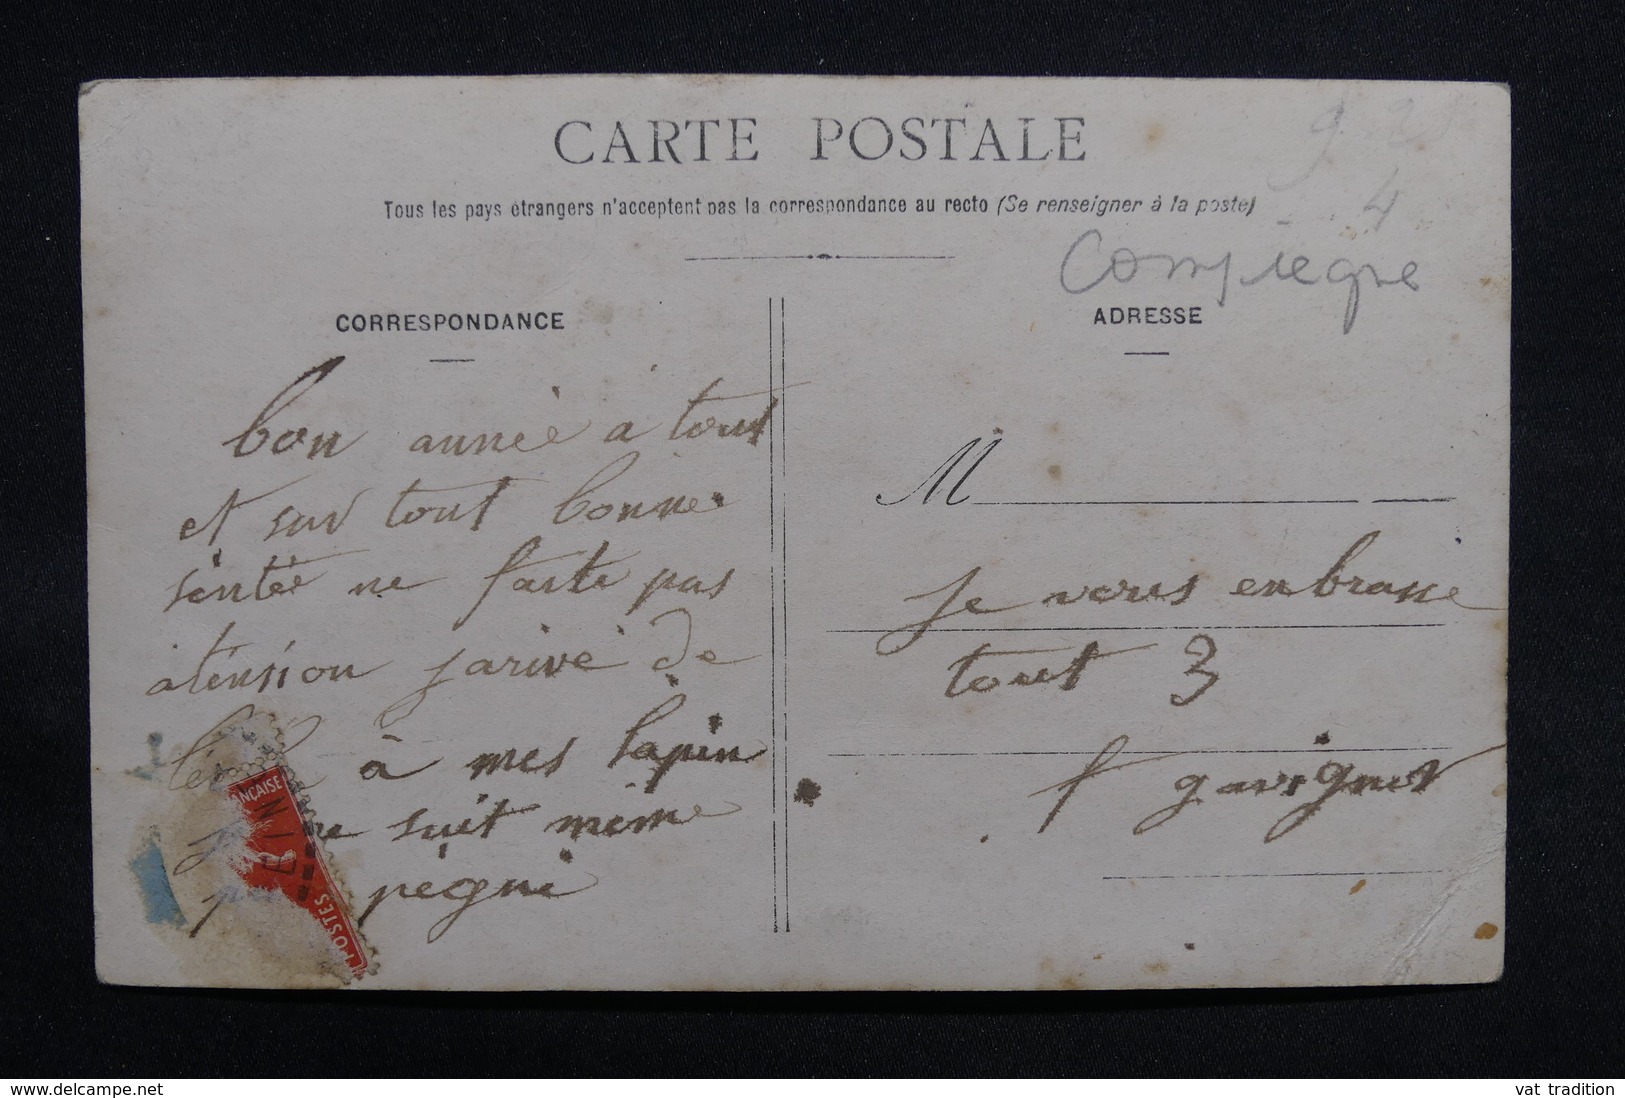 CARTE POSTALE
Tous les pays étrangers n'acceptent pas la correspondance au recto (Se renseigner à la poste)
9 2
4
Compiegne
CORRESPONDANCE
bon année à tout
et sur tout bonne
sentée ne faite pas
atension jarive de
à mes lapin
ne suit mime
pegni
ADRESSE
M
je vous enbrasse
tout 3
f gavignot
NÇAISE
POSTES
delcampe.net
vat tradition